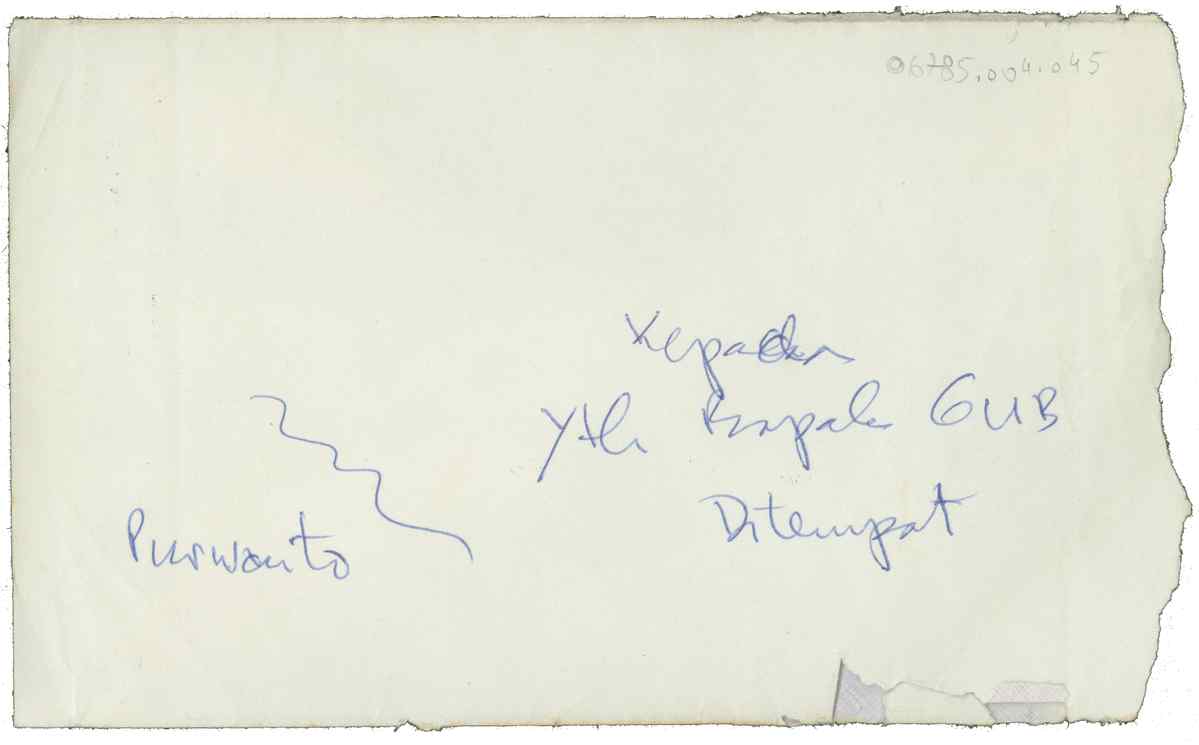 06785.004.045
Kepada
Yth Kepala GUB
Ditempat
Purwanto